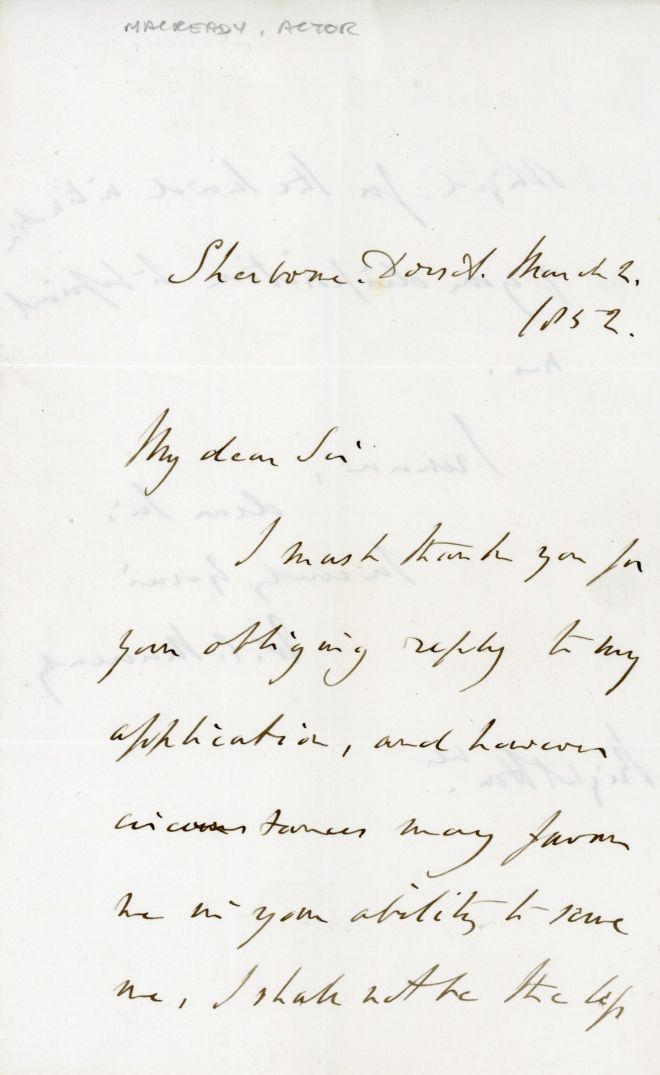 MACREADY, ACTOR
Sherborne. Dorset. March 2.
1852.
My dear Sir
I must thank you for
your obliging reply to my
application, and however
circumstances may favour
me in your ability to serve
me, I shall not be the less